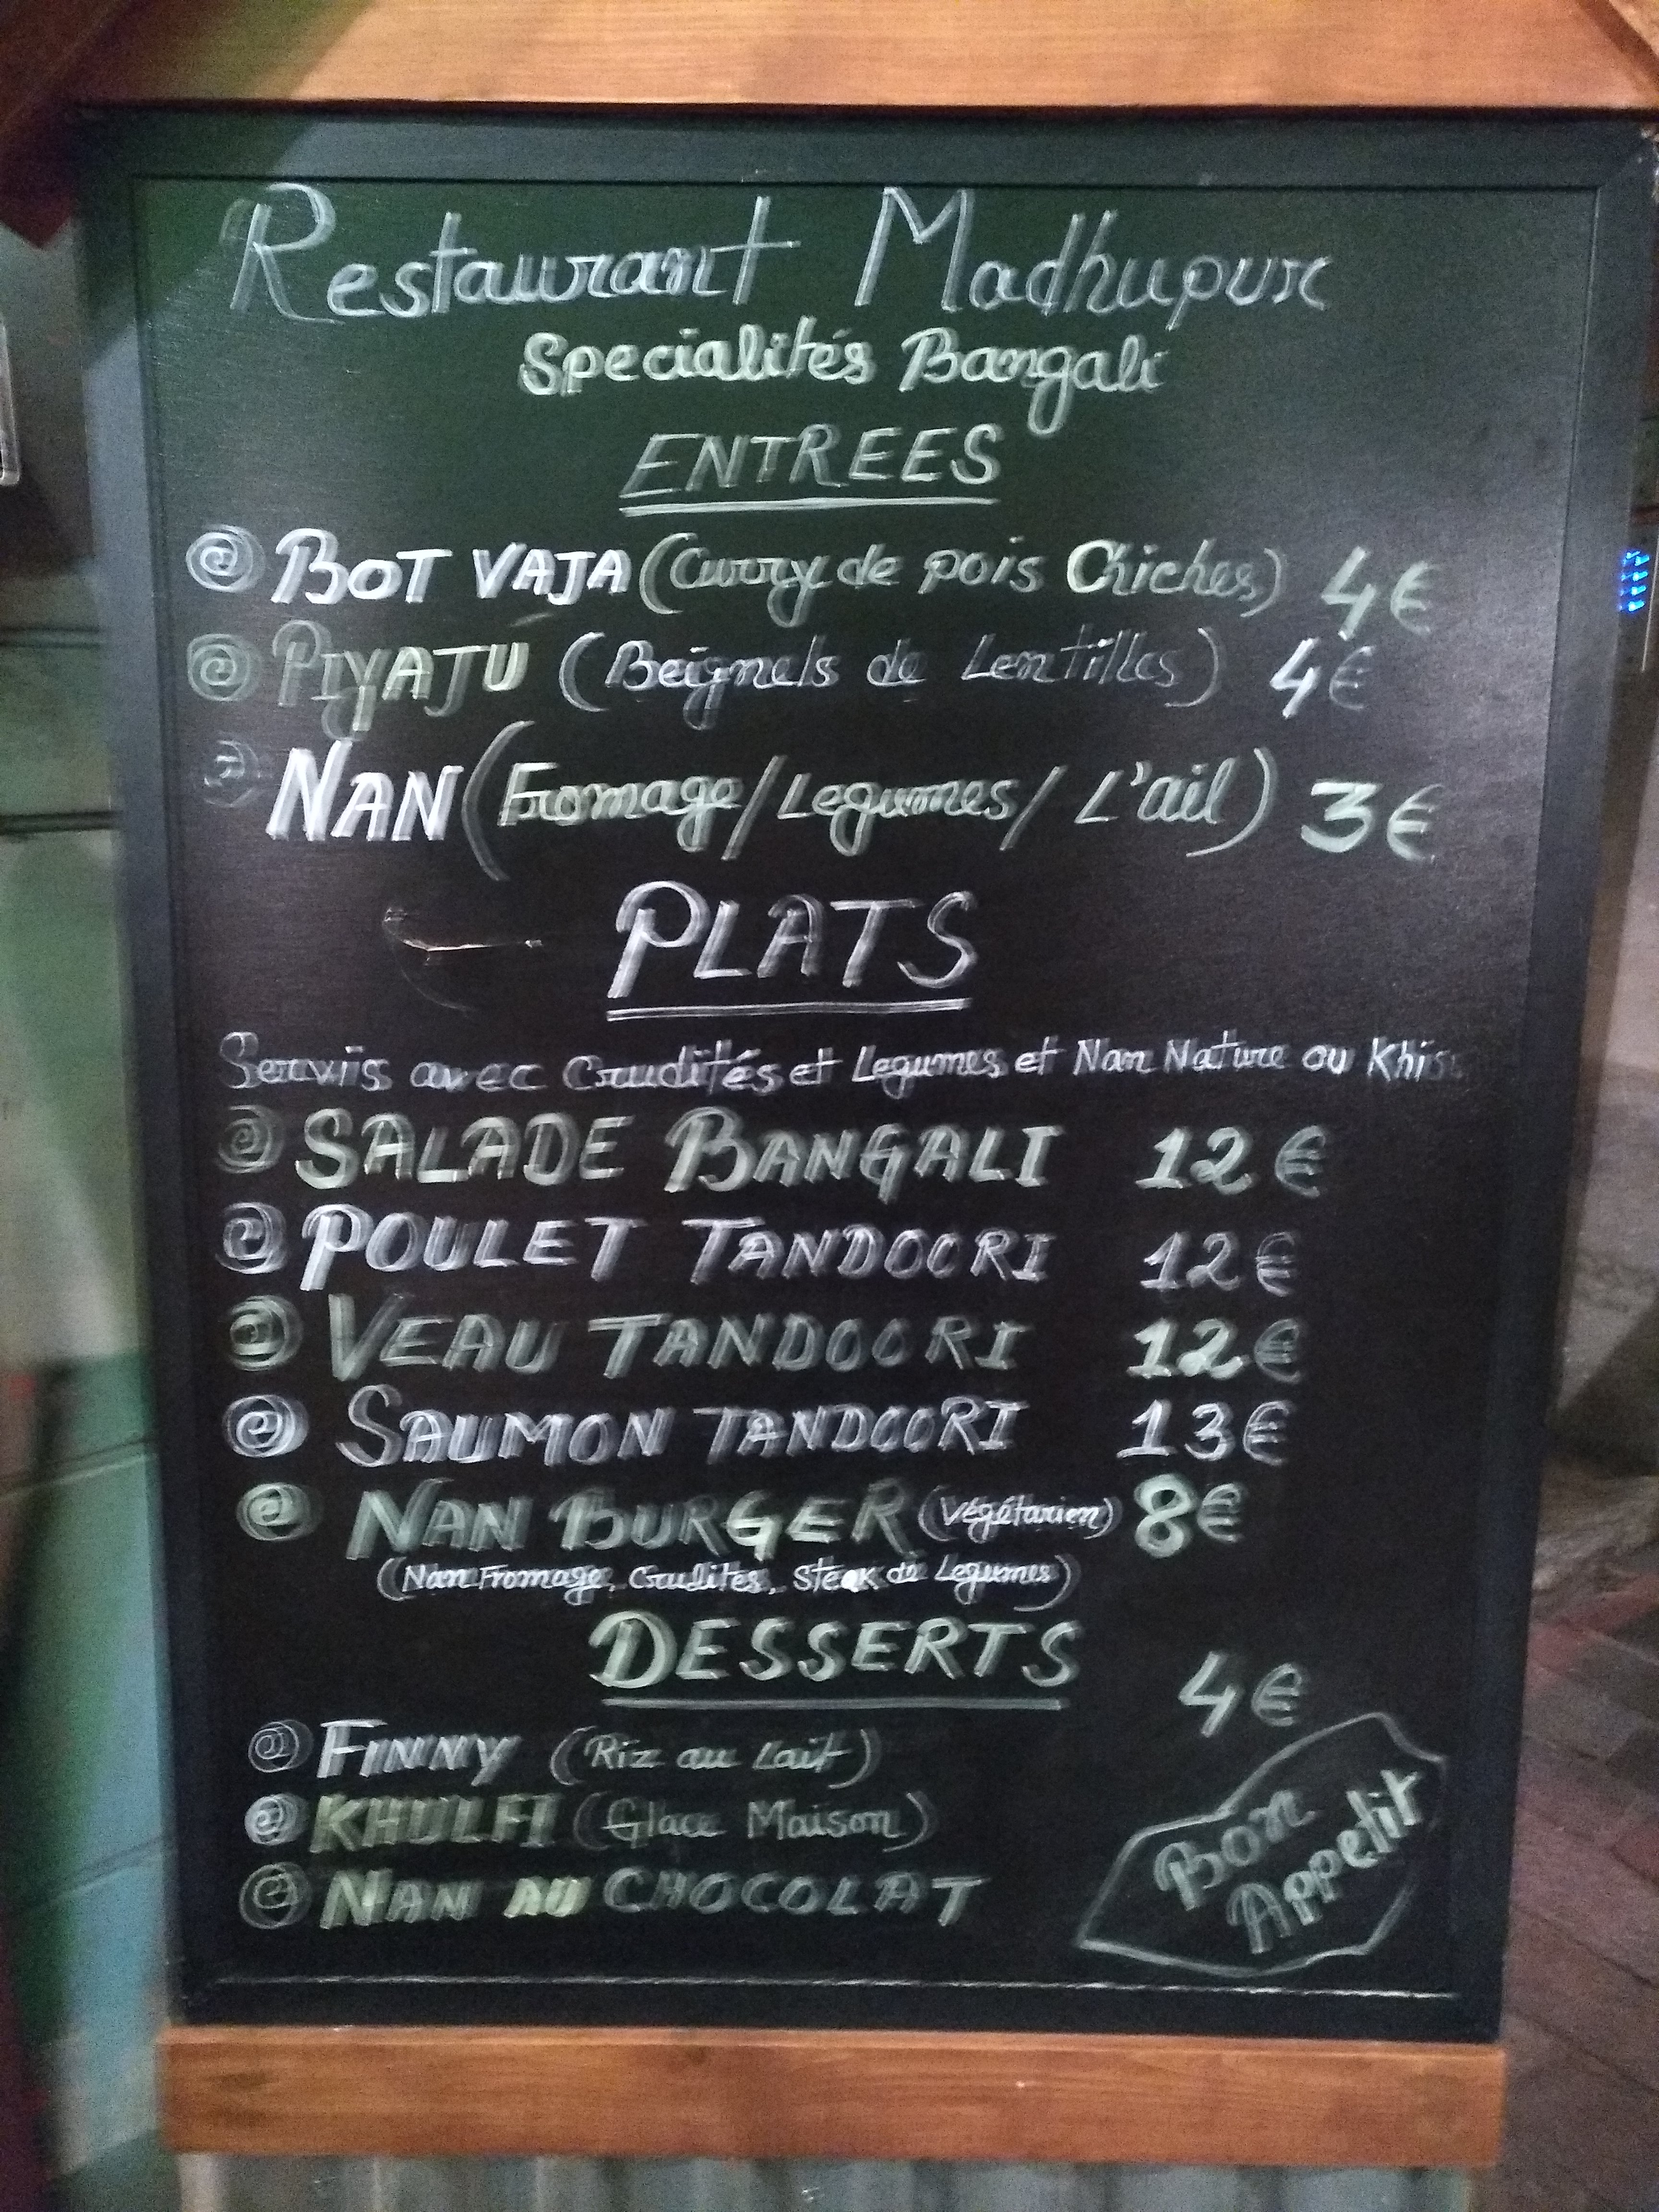 Restaurant Madhupur
Specialités Bangali
ENTREES
BOT VAJA (Curry de pois Chiches) 4€
PIYAJU (Beignets de Lentilles) 4€
NAN (Fromage/Legumes/L'ail) 3€
PLATS
Servis avec Crudités et Legumes et Nan Nature ou
SALADE BANGALI 12€
POULET TANDOORI 12€
VEAU TANDOORI 12€
SAUMON TANDOORI 13€
NAN BURGER (Végétarien) 8€
(Nan Fromage, Crudites, Steak de Legumes)
DESSERTS
4€
FINNY (Riz au Lait)
KHULFI (Glace Maison)
NAN AU CHOCOLAT
Bon
Appetit